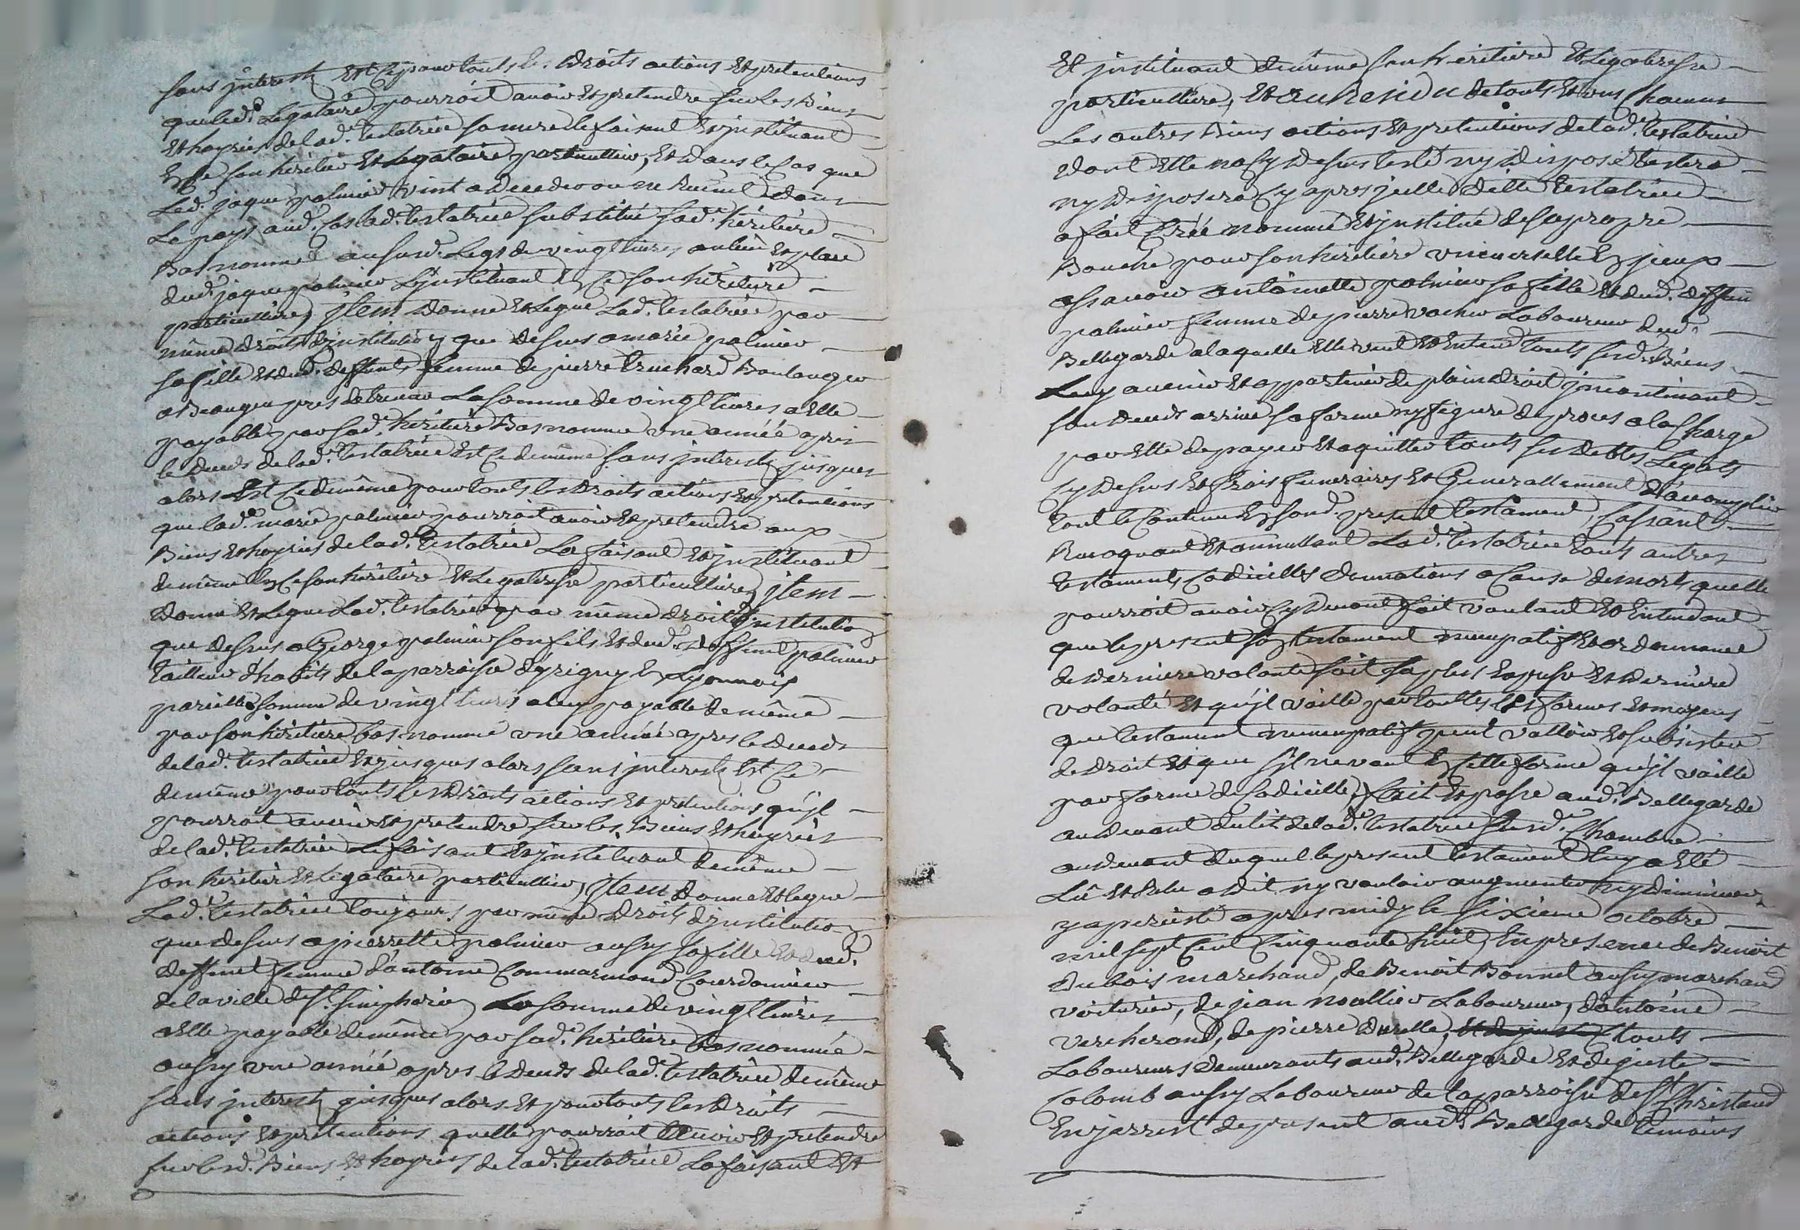 sans interest Et Ce pour touts les droits actions Et pretentions
que led.t Legataire pourroit avoir Et pretendre sur les Biens
Et hoyries de lad. testatrice sa mere le faisant Et jnstituant
En Ce son héritier Et Legataire particullier, Et dans le Cas que
Led. jaque palmier vint a deceder ou ne Revint dans
Le pays aud. Cas lad. testatrice substitüe sad. héritière
Bas nommée au susd. Legs de vingt livres au lieu Et place
dud. jaque palmier L'jnstituant En Ce son héritière
particulliere, jtem donne Et Legue Lad. testatrice par
même droit d'jnstitution que dessus a marie palmier
sa fille Et dud. deffunt femme de pierre truchard Boulanger
a Beaugeu pres de La somme de vingt livres a Elle
payable par sad. héritière Bas nommée une année apres
le deceds de lad. testatrice Et Ce de même sans jnterest jusques
alors Est Ce de même pour touts les droits actions Et pretentions
que lad. marie palmier pourroit avoir Et pretendre aux
Biens Et hoyries de lad. testatrice La faisant Et jnstituant
de même En Ce son héritière Et Legatresse particulliere, jtem
donne Et Legue Lad. testatrice par même droit d'jnstitution
que dessus a George palmier son fils Et dud. deffunt palmier
tailleur d'habits de la parroisse d'yrigny En Lyonnois
pareille somme de vingt livres a luy payable de même
par son héritière bas nommée une année apres le deceds
de lad. testatrice Et jusques alors sans jnterests Est Ce
de même pour touts les droits actions Et pretentions qu'jl
pourroit avoir Et pretendre sur les Biens Et hoyries
de lad. testatrice Le faisant Et jnstituant de même
son héritier Et Legataire particullier, jtem donne Et Legue
Lad. testatrice toujours par même droit d'jnstitution
que dessus a pierrette palmier aussy sa fille Et dud.
deffunt femme d'antoine Commarmond Cordonnier
de la ville de St. Simphorien La somme de vingt livres
a Elle payable de même par sad. héritière bas nommée
aussy une année apres le deceds de lad. testatrice de même
sans jnterest jusques alors Et pour touts les droits
actions Et pretentions quelle pourroit avoir Et pretendre
sur lesd. Biens Et hoyries de lad. testatrice La faisant Et
Et jnstituant de même son héritière Et Legatresse
particulliere, Et au Residu de touts Et uns Chacuns
Les autres Biens actions Et pretentions de lad. testatrice
dont Elle na cy dessus testé ny disposé testera
ny disposera Cy apres jcelle ditte testatrice
a fait Créé nommé Et jnstitué de sa propre
Bouche pour son héritière universelle En jceux
assavoir antoinette palmier sa fille Et dud. deffunt
palmier femme de pierre vacher Laboureur dud.
Bellegarde a laquelle Elle veut Et Entend touts sesd. Biens
Luy avenir Et appartenir de plain droit jncontinant
son deceds arrivé sa forme ny figure de proces a la Charge
par Elle de payer Et aquitter touts ses debtes Legats
Cy dessus Et frais funeraires Et Generallement d'accomplir
tout le Contenu En sond. present testament, Cassant
Revoquant Et annullant Lad. testatrice touts autres
testaments Codicilles donnations a Cause de mort quelle
pourroit avoir Cy devant fait voulant Et Entendant
que le present son testament nuncupatif Et ordonnance
de derniere volonté soit sa plus Expresse Et derniére
volonté Et qu'jl vaille par touttes les formes Et moyens
que testament nuncupatif peut valloir Et subsister
de droit Et que s'jl ne vaut En cette forme qu'jl vaille
par forme de Codicille, fait Et passé aud. Bellegarde
au devant du lit de lad. testatrice susd. Chambre
au devant duquel le present testament luy a Eté
Lû Et Relu a dit ny vouloir augmenter ny diminuer
y a persisté apres midy le sixieme octobre
mil sept Cent Cinquante huit En presence de Benoit
Dubois marchand, de Benoit Bonnet aussy marchand
voiturier, de jean noallier Laboureur, d'antoine
vercherand, de pierre durelle, touts
Laboureurs demeurants aud. Bellegarde Et de juste
Colomb aussy Laboureur de la parroisse de St. Christaud
En jarrest de present aud. Bellegarde temoins